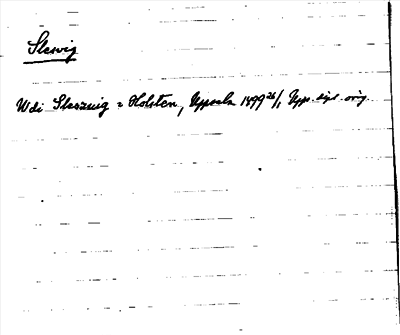 Slesvig
Wdi Sleszuig = Holsten, Uppsala 1499 26/1 Upps. dipl. orig.